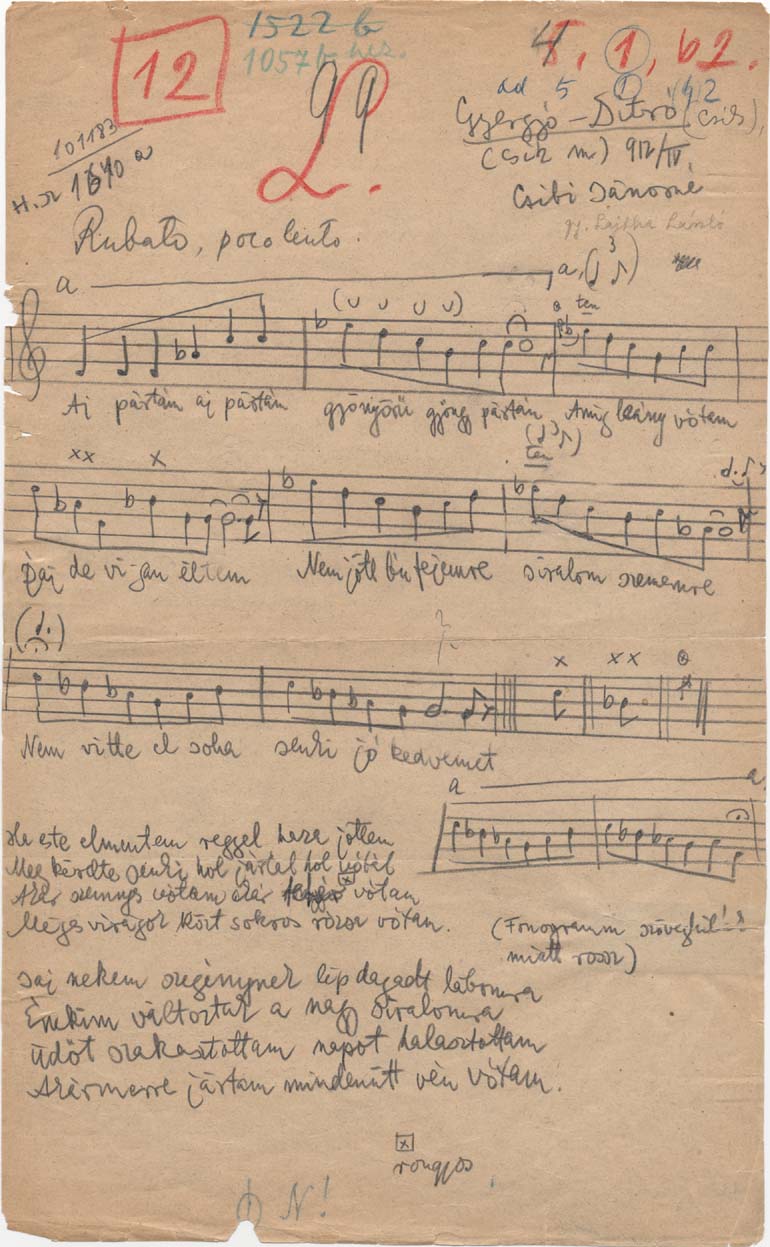 12
1522 b
1057 b
99
L.
101183
Gyergyó-Ditró (Csík),
(Csík m.) 912/IV.
Csibi Jánosné
gy. Lajtha László
Rubato, poco lento.
a
a,
ten
Aj pártám aj pártám gyöngyörű gyöngy pártám Amíg leány vótam
xx x
ten
de vigan éltem Nem jött bu fejemre siralom szememre
x xx
Nem vitte el soha senki jó kedvemet
a a
Ha este elmentem reggel haza jöttem
Meg kérdte senki hol jártál hol
Akár szennyes vótam akár vótam
Méges virágok közt sokros rózsa vótam.
(Fonogramm szöveghü!?
miatt rossz)
Jaj nekem szegénynek lip dagadt lábomra
Énekim változtak a nagy siralomra
üdöt szakasztottam napot halasztottam
Akármerre jártam mindenütt vén vótam.
x
rongyos
N!